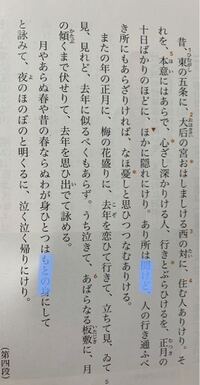 昔、東の五条に、大后の宮おはしましける西の対に、住む人ありけり。そ
れを、本意にはあらで、心ざし深かりける人、行きとぶらひけるを、正月の
十日ばかりのほどに、ほかに隠れにけり。あり所は聞けど、人の行き通ふべ
き所にもあらざりければ、なほ憂しと思ひつつなむありける。
またの年の正月に、梅の花盛りに、去年を恋ひて行きて、立ちて見、ゐて
見、見れど、去年に似るべくもあらず。うち泣きて、あばらなる板敷に、月
の傾くまで伏せりて、去年を思ひ出でて詠める。
月やあらぬ春や昔の春ならぬわが身ひとつはもとの身にして
と詠みて、夜のほのぼのと明くるに、泣く泣く帰りにけり。
(第四段)
5